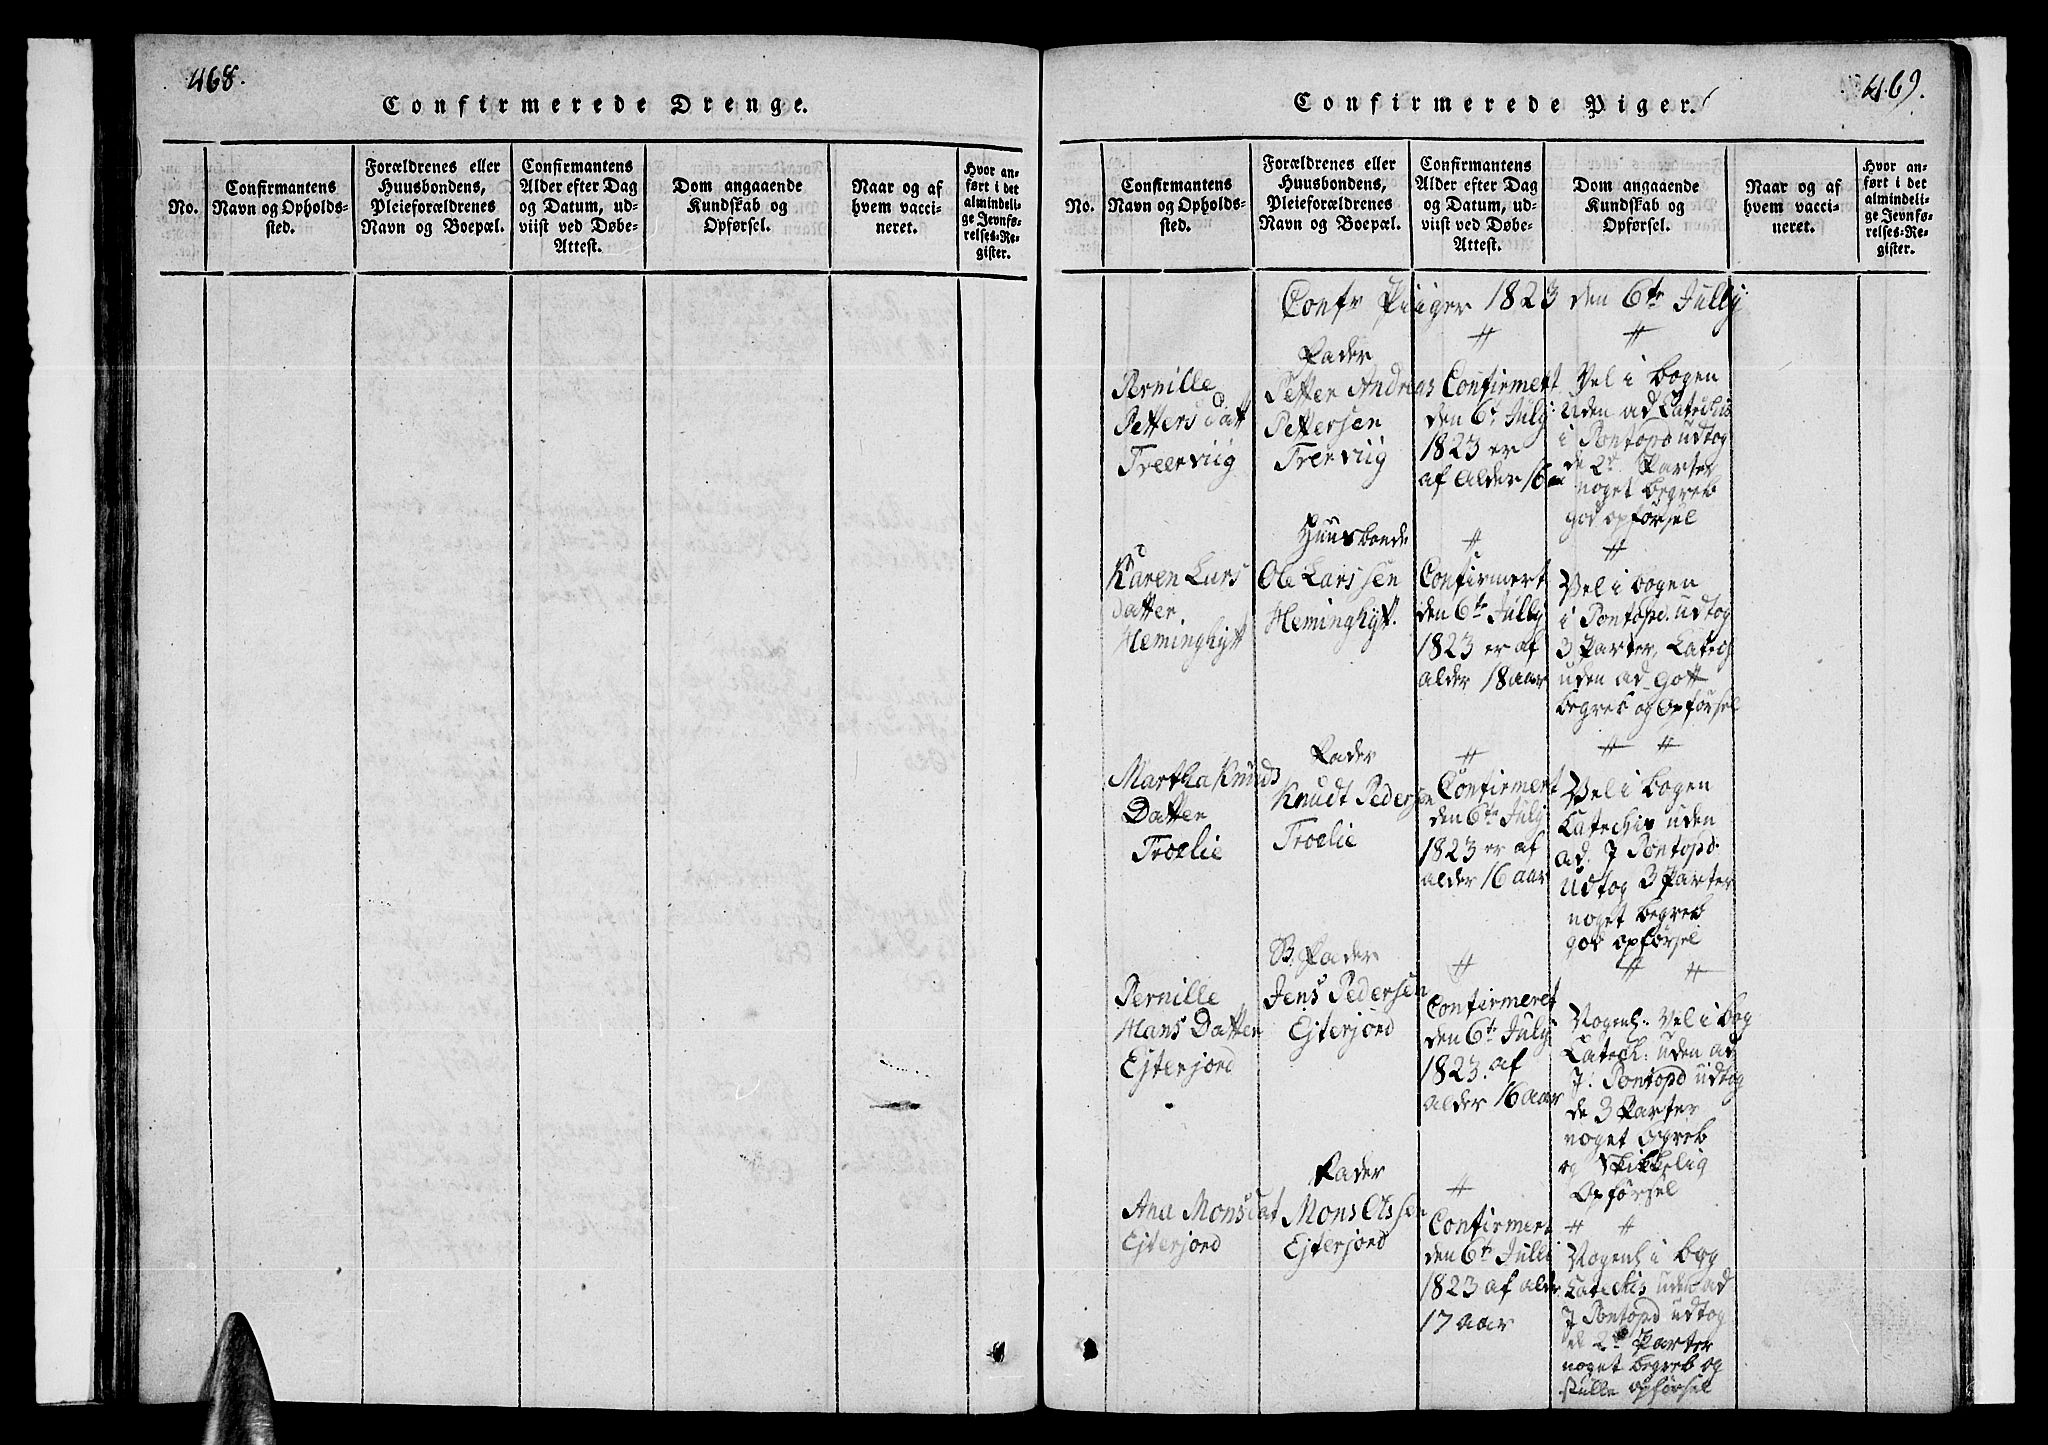 468.
Confirmerede Drenge.
No.
Confirmantens
Navn og Opholds-
sted.
Forældrenes eller
Huusbondens,
Pleieforældrenes
Navn og Boepæl.
Confirmantens
Alder efter Dag
og Datum, ud-
viist ved Døbe-
Attest.
Dom angaaende
Kundskab og
Opførsel.
Naar og af
hvem vacci-
neret.
Hvor an-
ført i det
almindeli-
ge Jevnfø-
relses-Re-
gister.
469.
Confirmerede Piger.
No.
Confirmantens
Navn og Opholds-
sted.
Forældrenes eller
Huusbondens,
Pleieforældrenes
Navn og Boepæl.
Confirmantens
Alder efter Dag
og Datum, ud-
viist ved Døbe-
Attest.
Dom angaaende
Kundskab og
Opførsel.
Naar og af
hvem vacci-
neret.
Hvor an-
ført i det
almindeli-
ge Jevnfø-
relses-Re-
gister.
Confr Piiger 1823 den 6te Jully
Pernille
Petters Datt
Treerviig
Fader
Petter Andreas
Pettersen
Trerviig
Confirmert
den 6t July
1823 er
af Alder 16
Vel i bogen
uden ad Catechis
i Pontopd udtog
de 2de Parter
noget begreb
god opførsel
Karen Lars
Datter
Heminghytt
Huusbonde
Ole Larssen
Heminghytt.
Confirmert
den 6te Jully
1823 er af
alder 18 aar
Vel i bogen
i Pontopd. udtog
3 Parter, Catech
uden ad gott
begreb og Opførsel
Martha Knuds
Datter
Troelie
Fader
Knudt Pedersen
Troelie
Confirmert
den 6te July
1823 er af
alder 16 aar
Vel i bogen
Catechis uden
ad. J Pontopd.
udtog 3 Parter
noget begreb
god opførsel
Pernille
Hans Datter
Ejterjord
B. Fader
Jens Pedersen
Ejterjord
Confirmeret
den 6te July
1823. af
alder 16 aar
Nogenl: Vel i bog
Catech: uden ad
J: Pontopd udtog
de 3 Parter
noget begreb
og Skikkelig
Opførsel
Ana Monsdat
Ejterjord
Fader
Mons Olssen
Ejterjord
Confirmert
den 6te Juli
1823 af alder
17 aar
Nogenl i bog
Catechis uden ad
J Pontopd udtog
de 2de Parter
noget begreb og
stille opførsel